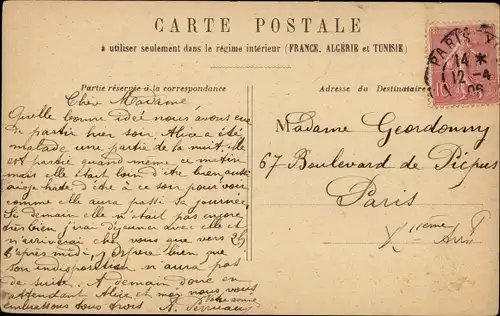 CARTE POSTALE
à utiliser seulement dans le régime intérieur (FRANCE, ALGÉRIE et TUNISIE)
PARIS
14 *
12 -4
06
10
Partie réservée à la correspondance
Adresse du Destinataire
Chère Madame
Quelle bonne idée nous avons eue
de partir hier soir, Alice a été
malade une partie de la nuit, elle
est partie quand même ce matin
mais elle était loin d'être bien, aussi
ai-je hâte d'être à ce soir pour voir
comme elle aura passé sa journée.
Si demain elle n'était pas encore
très bien j'irai déjeuner avec elle et
n'arriverai chez vous que vers 2h
l'après midi, j'espère bien que
son indisposition n'aura pas
de suite. A demain donc en
attendant Alice et moi nous vous
embrassons tous trois
Madame Geordonny
67 Boulevard de Picpus
Paris
XIIème Arrt